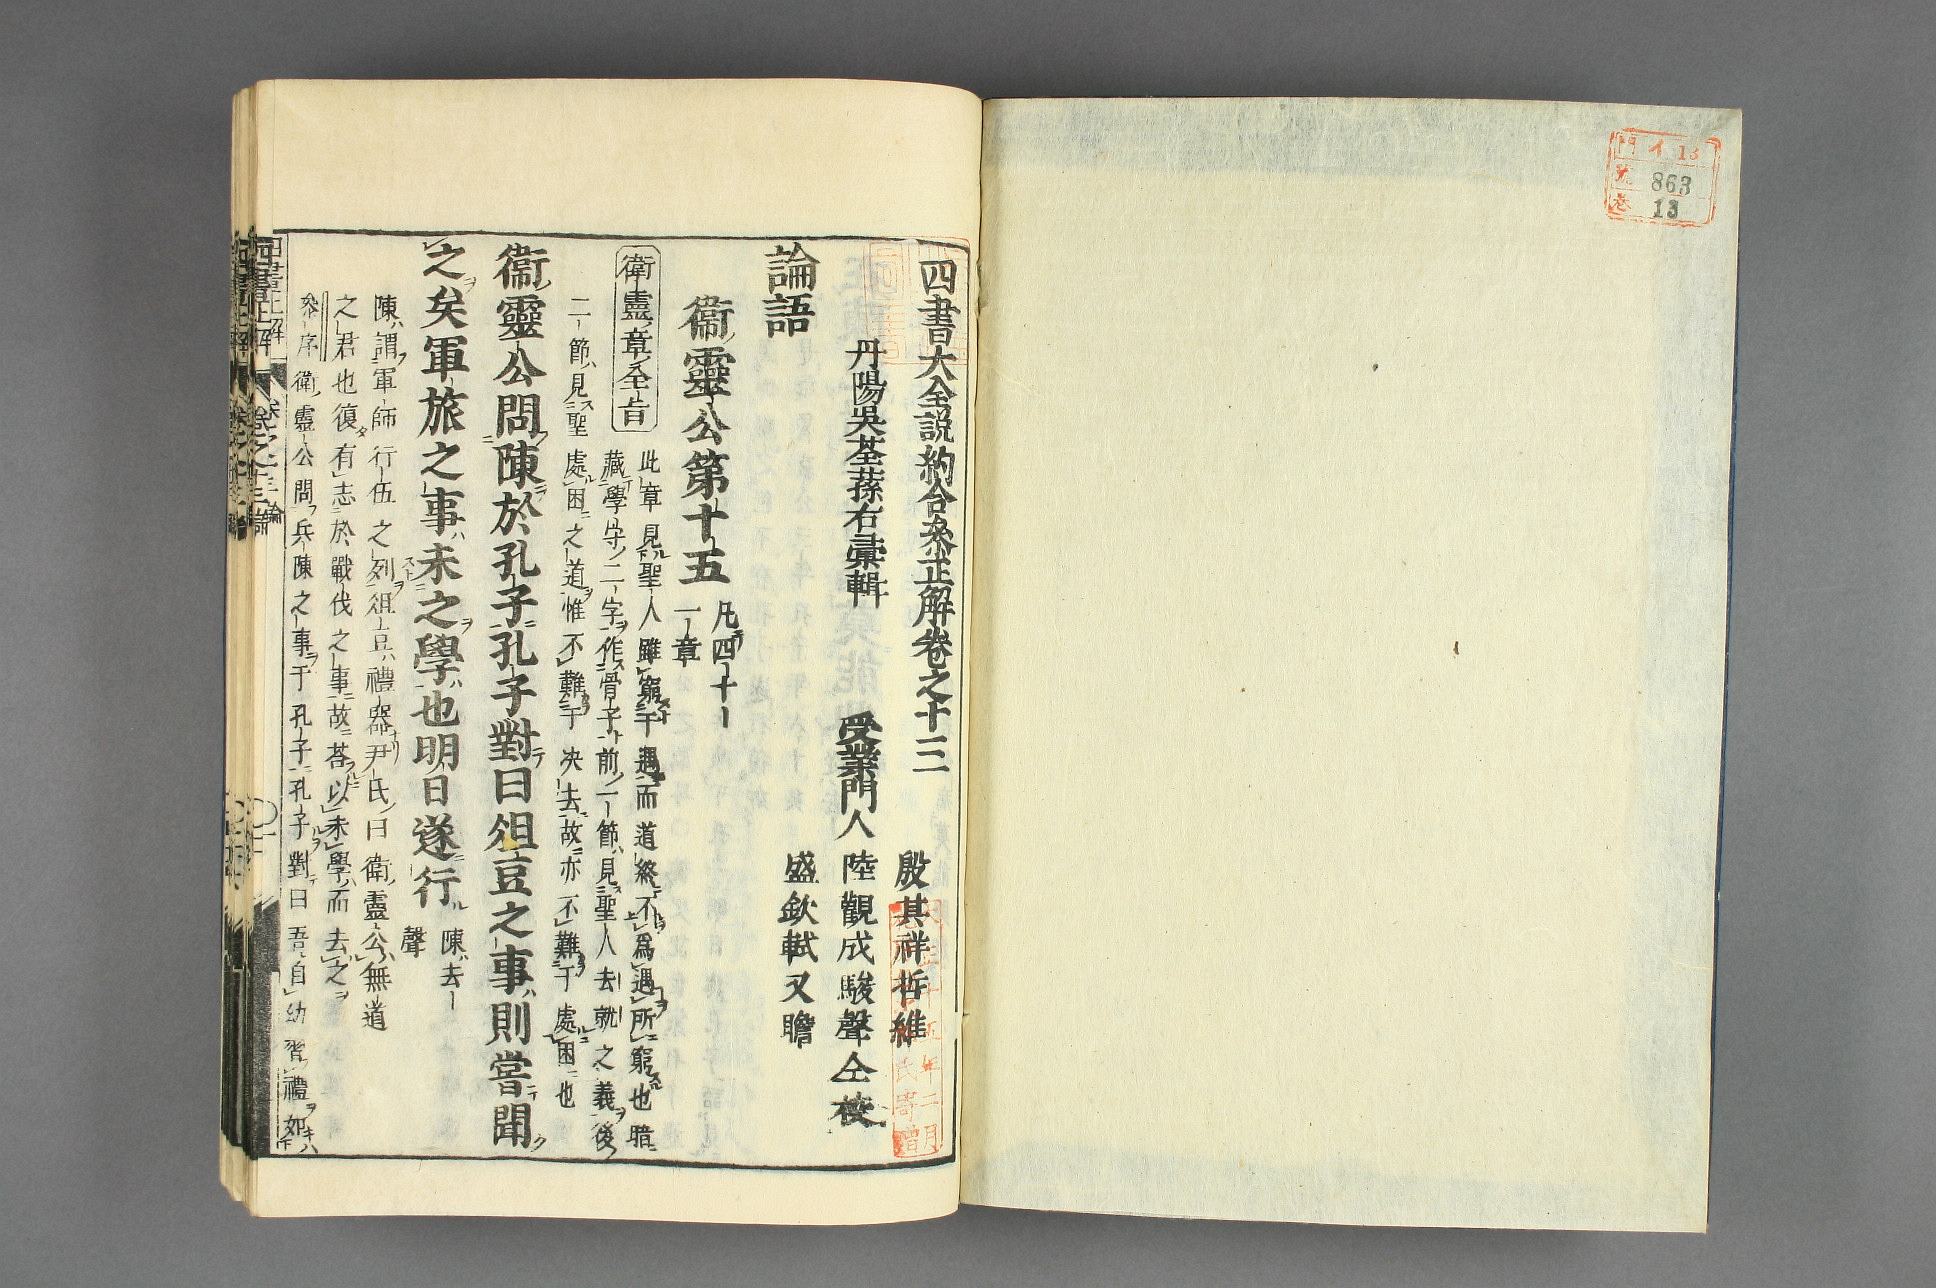 門 イ 13
号 863
巻 13
四書大全説約合參正解卷之十三
丹陽吳荃蓀右彚輯
受業門人
殷其祥哲維
陸觀成駿聲仝校
盛欽軾又瞻
論語
衞靈公第十五
凡四十
一章
衛靈章全旨
此章見聖人雖窮于遇而道終不爲遇所窮也暗
藏學守二字作骨子前一節見聖人去就之義後
二節見聖處困之道惟不難于决去故亦不難于處困也
衞靈公問陳於孔子孔子對曰俎豆之事則嘗聞
之矣軍旅之事未之學也明日遂行
陳去
聲
陳謂軍師行伍之列俎豆禮器尹氏曰衛靈公無道
之君也復有志於戰伐之事故荅以未學而去之
參序衛靈公問兵陳之事于孔子孔子對曰吾自幼習禮如
四書正解
卷之十三
論